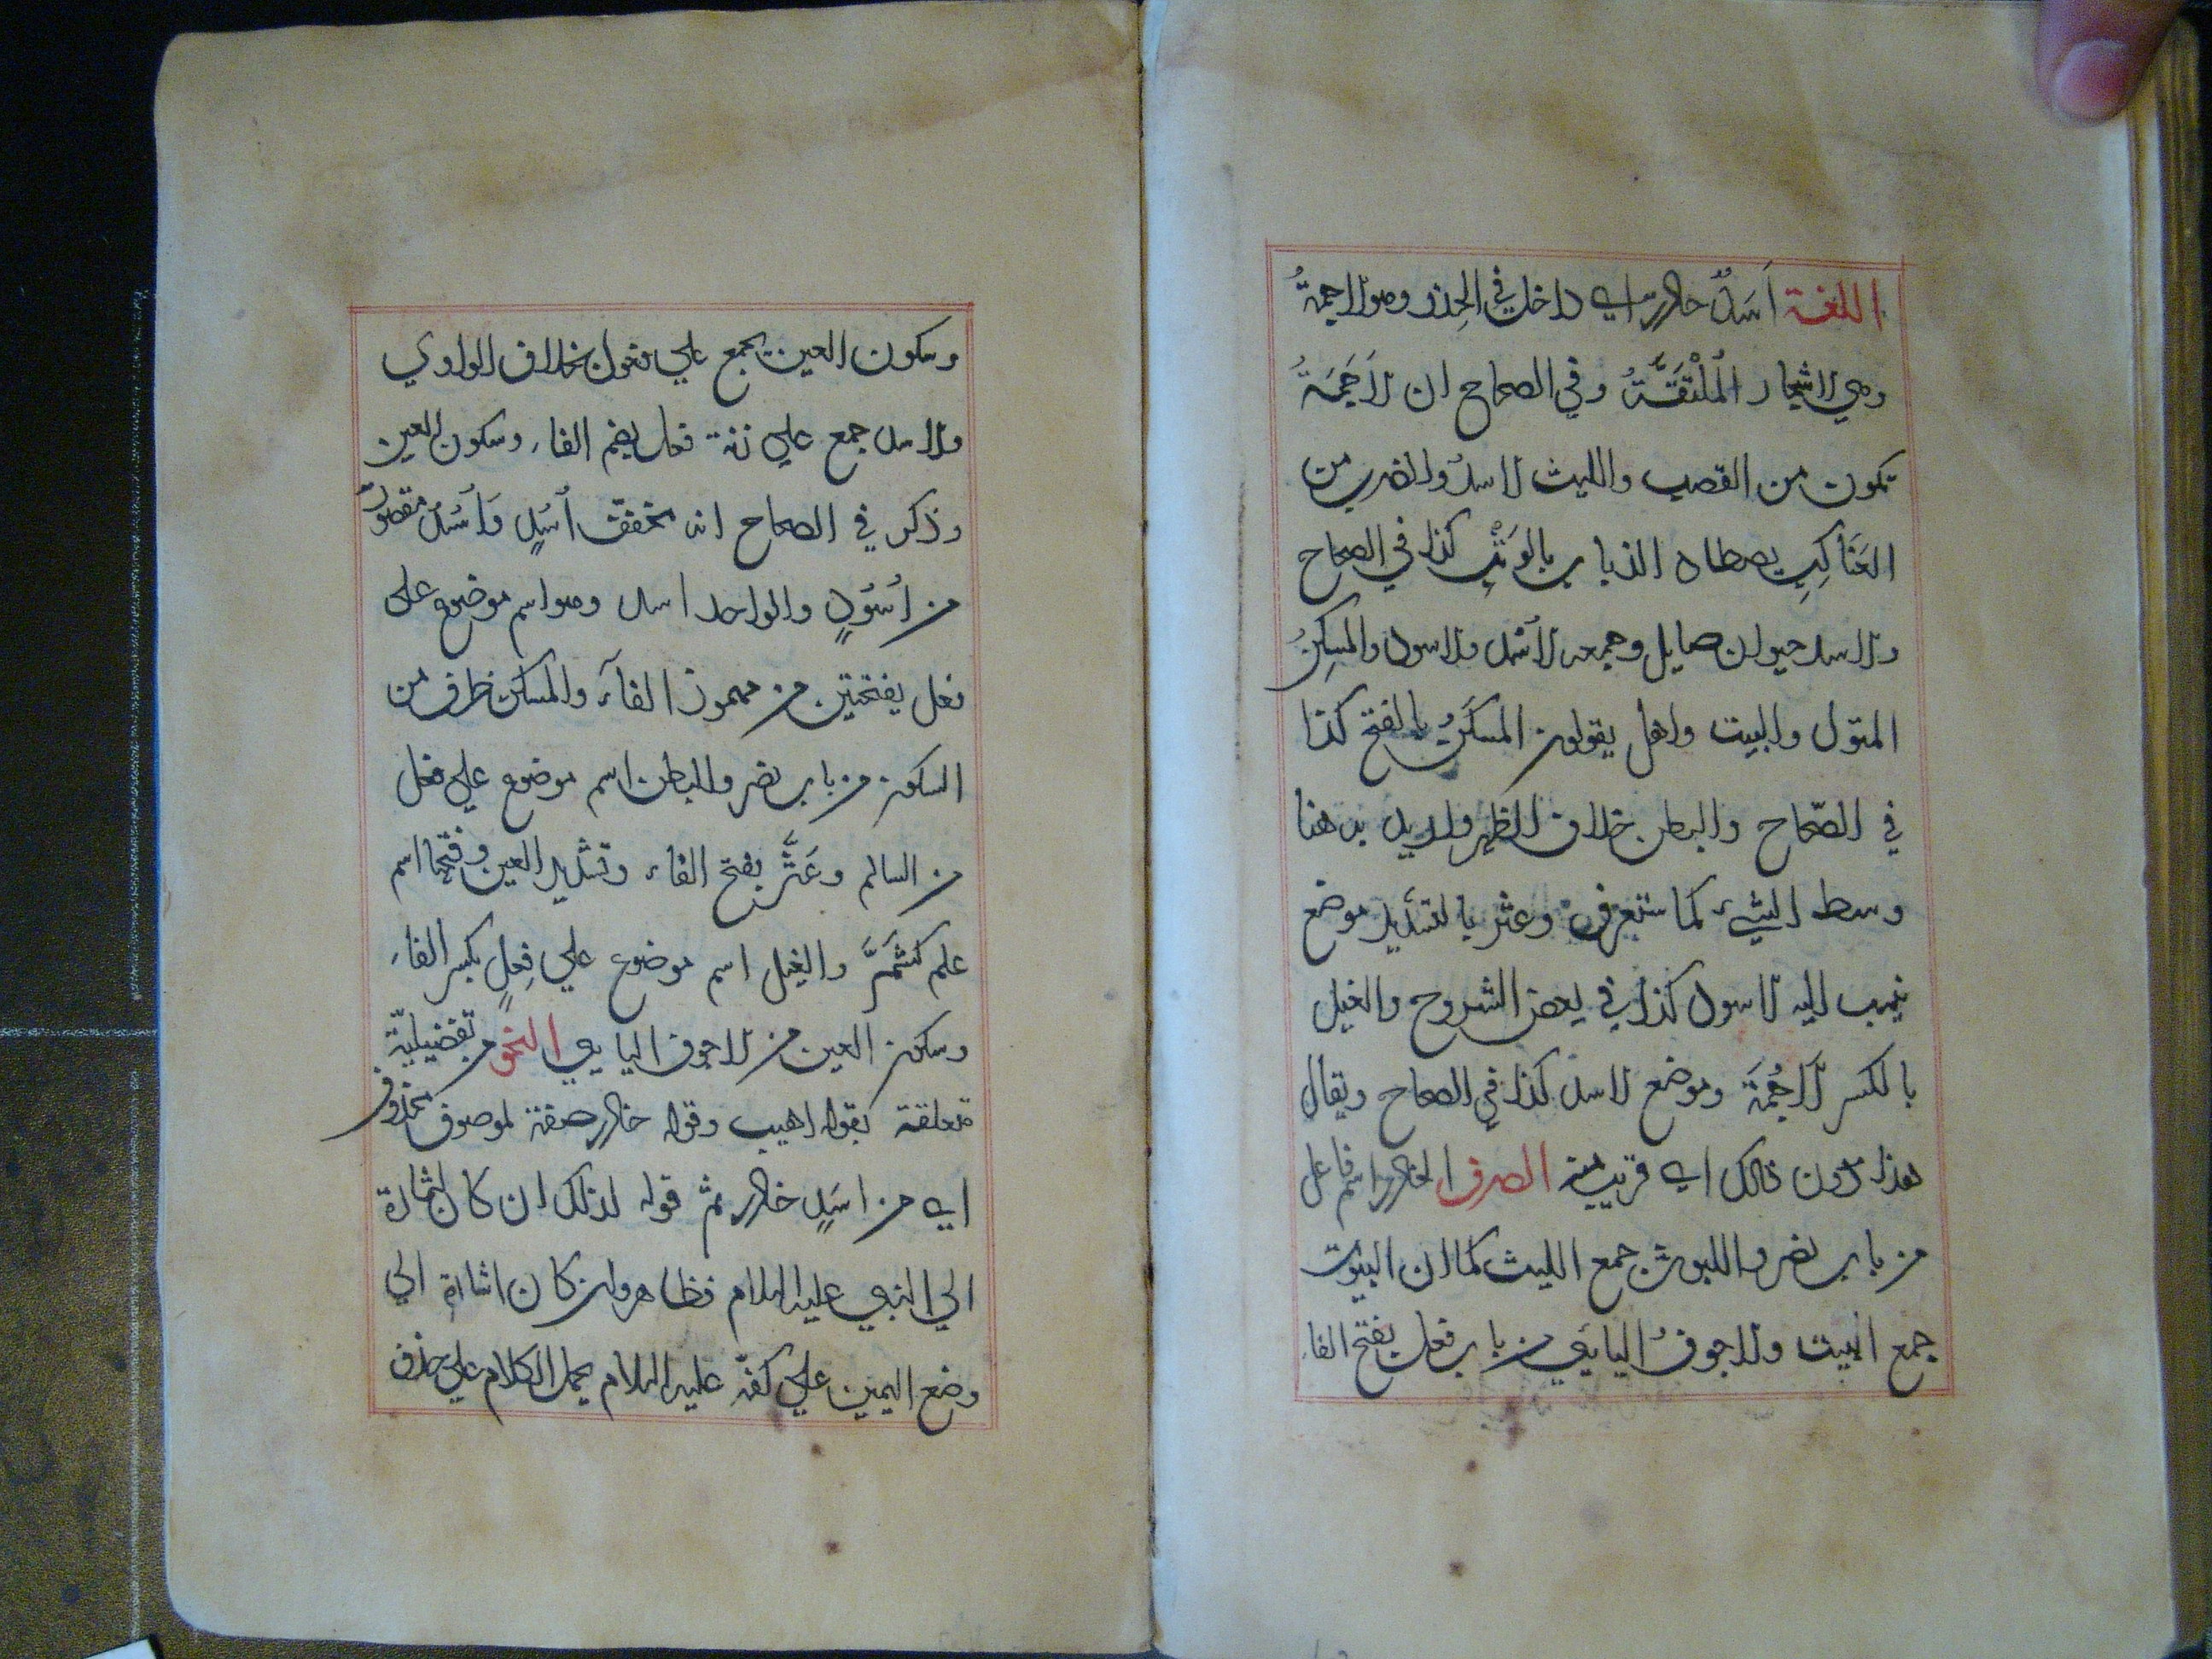 اللغة اَسَدٌ خادر اي داخل في الخِدر وهو الاجمةُ
وهي الاشجار المُلْتَفَّةُ وفي الصحاح ان الاَجَمَةُ
تكون من القصب والليث الاسدُ والضرب من
العَنَاكِبِ يصطاد الذباب بالوَثْبِ كذا في الصحاح
والاسد حيوان صايل وجمعه الاُسْد والاسود والمسكِنُ
المنزل والبيت واهل يقولون المسكَنُ بالفتح كذا
في الصّحاح والبطن خلاف الظهر والاريد به هنا
وسط الشيء كما ستعرف وعثر بالتشديد موضع
ينسب اليه الاسود كذا في بعض الشروح والغيل
بالكسر الاَجُمَة وموضع الاسد كذا في الصحاح ويقال
هذا دون ذالك اي قريب منه الصرف الخادر اسم فاعل
من باب نصر والليوث جمع الليث كما ان البيوت
جمع البيت والاجوفُ اليائي من باب فعل بفتح الفاء
وسكون العين يجمع علي فعول بخلاف الواوي
والاسد جمع علي زنة فعل بضم الفاء وسكون العين
وذكر في الصحاح انه مخفف اُسُدٍ وَاُسُدٌ مقصورٌ
من اُسُودٍ والواحد اسد وهو اسم موضوع على
فعل بفتحتين من مهموز الفآء والمسكن ظرف من
السكون من باب نصر والبطن اسم موضوع علي فعل
من السالم وعَثَّر بفتح الفاء وتشديد العين وفتحها اسم
علم كشَمَّرَ والغيل اسم موضوع علي فِعلٍ بكسر الفاء
وسكون العين من الاجوف اليايي النحو من تفضيليّة
متعلقة بقوله اهيب وقوله خادر صفة لموصوف محذوف
اي من اسَدٍ خادر ثم قوله لذلك ان كان اشارة
الي النبي عليه السلام فظاهر وان كان اشارة الي
وضع اليمين علي كفّه عليه السلام يحمل الكلام علي حذف